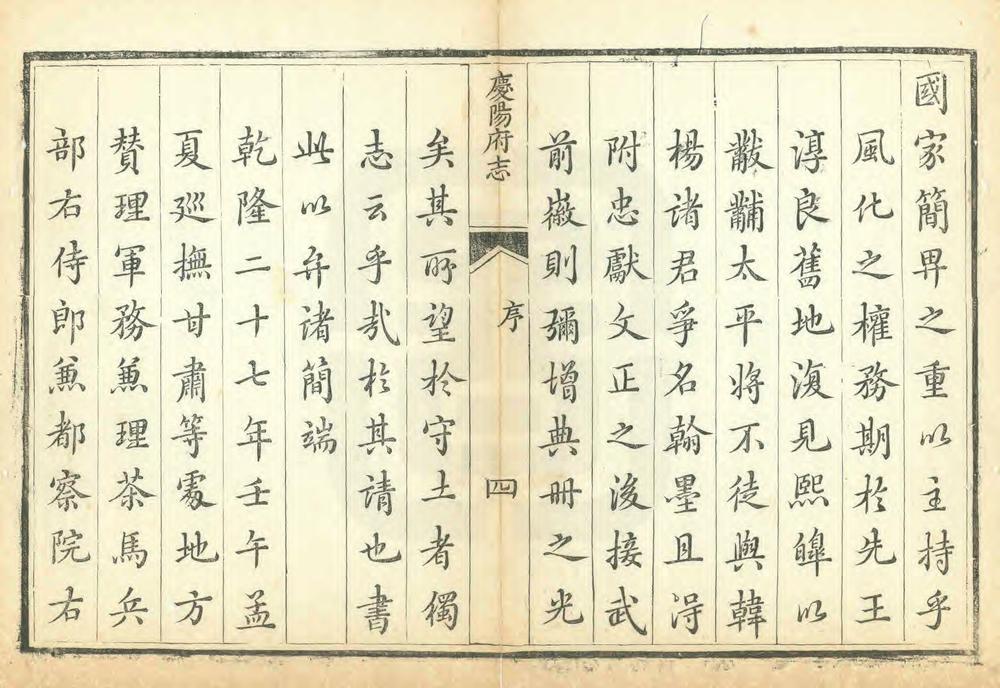 國家簡畀之重以主持乎
風化之權務期於先王
淳良舊地復見熙皞以
黻黼太平將不徒與韓
楊諸君爭名翰墨且得
附忠獻文正之後接武
前徽則彌增典冊之光
慶陽府志
序
四
矣其所望於守土者獨
志云乎哉於其請也書
此以弁諸簡端
乾隆二十七年壬午孟
夏廵撫甘肅等處地方
贊理軍務兼理茶馬兵
部右侍郎兼都察院右